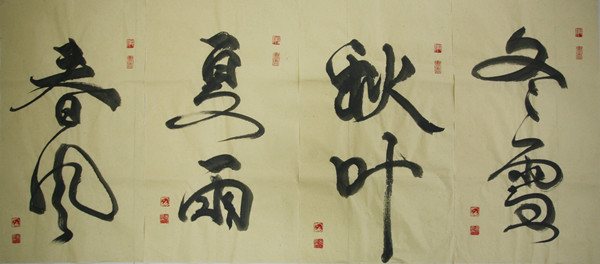 春风
夏雨
秋叶
冬雪